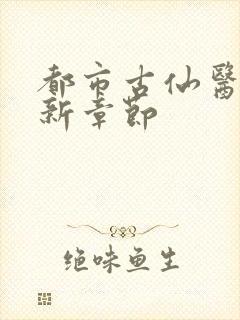 都市古仙醫
新章節
绝味鱼生